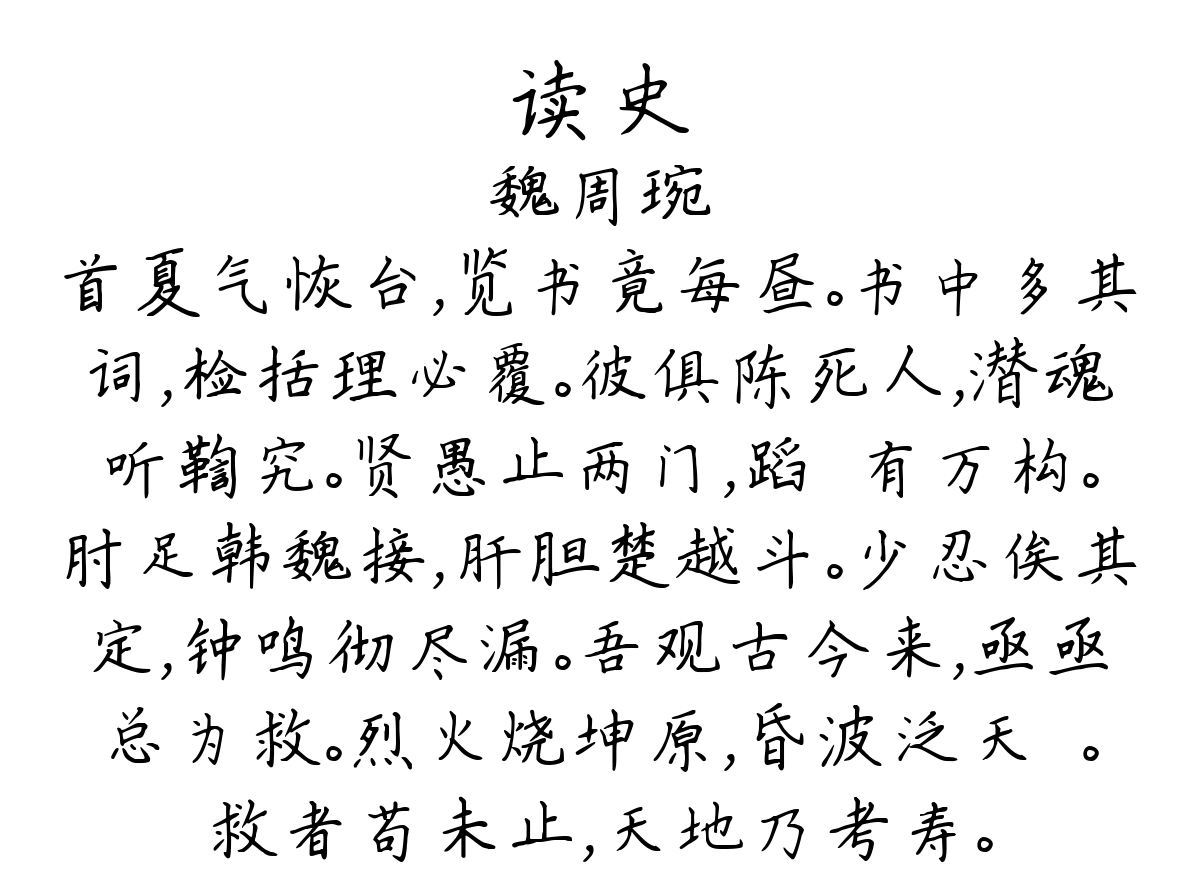 读史
魏周琬
首夏气恢台,览书竟每昼。书中多其
词,检括理必覆。彼俱陈死人,潜魂
听鞫究。贤愚止两门,蹈 有万构。
肘足韩魏接,肝胆楚越斗。少忍俟其
定,钟鸣彻尽漏。吾观古今来,亟亟
总为救。烈火烧坤原,昏波泛天 。
救者苟未止,天地乃考寿。